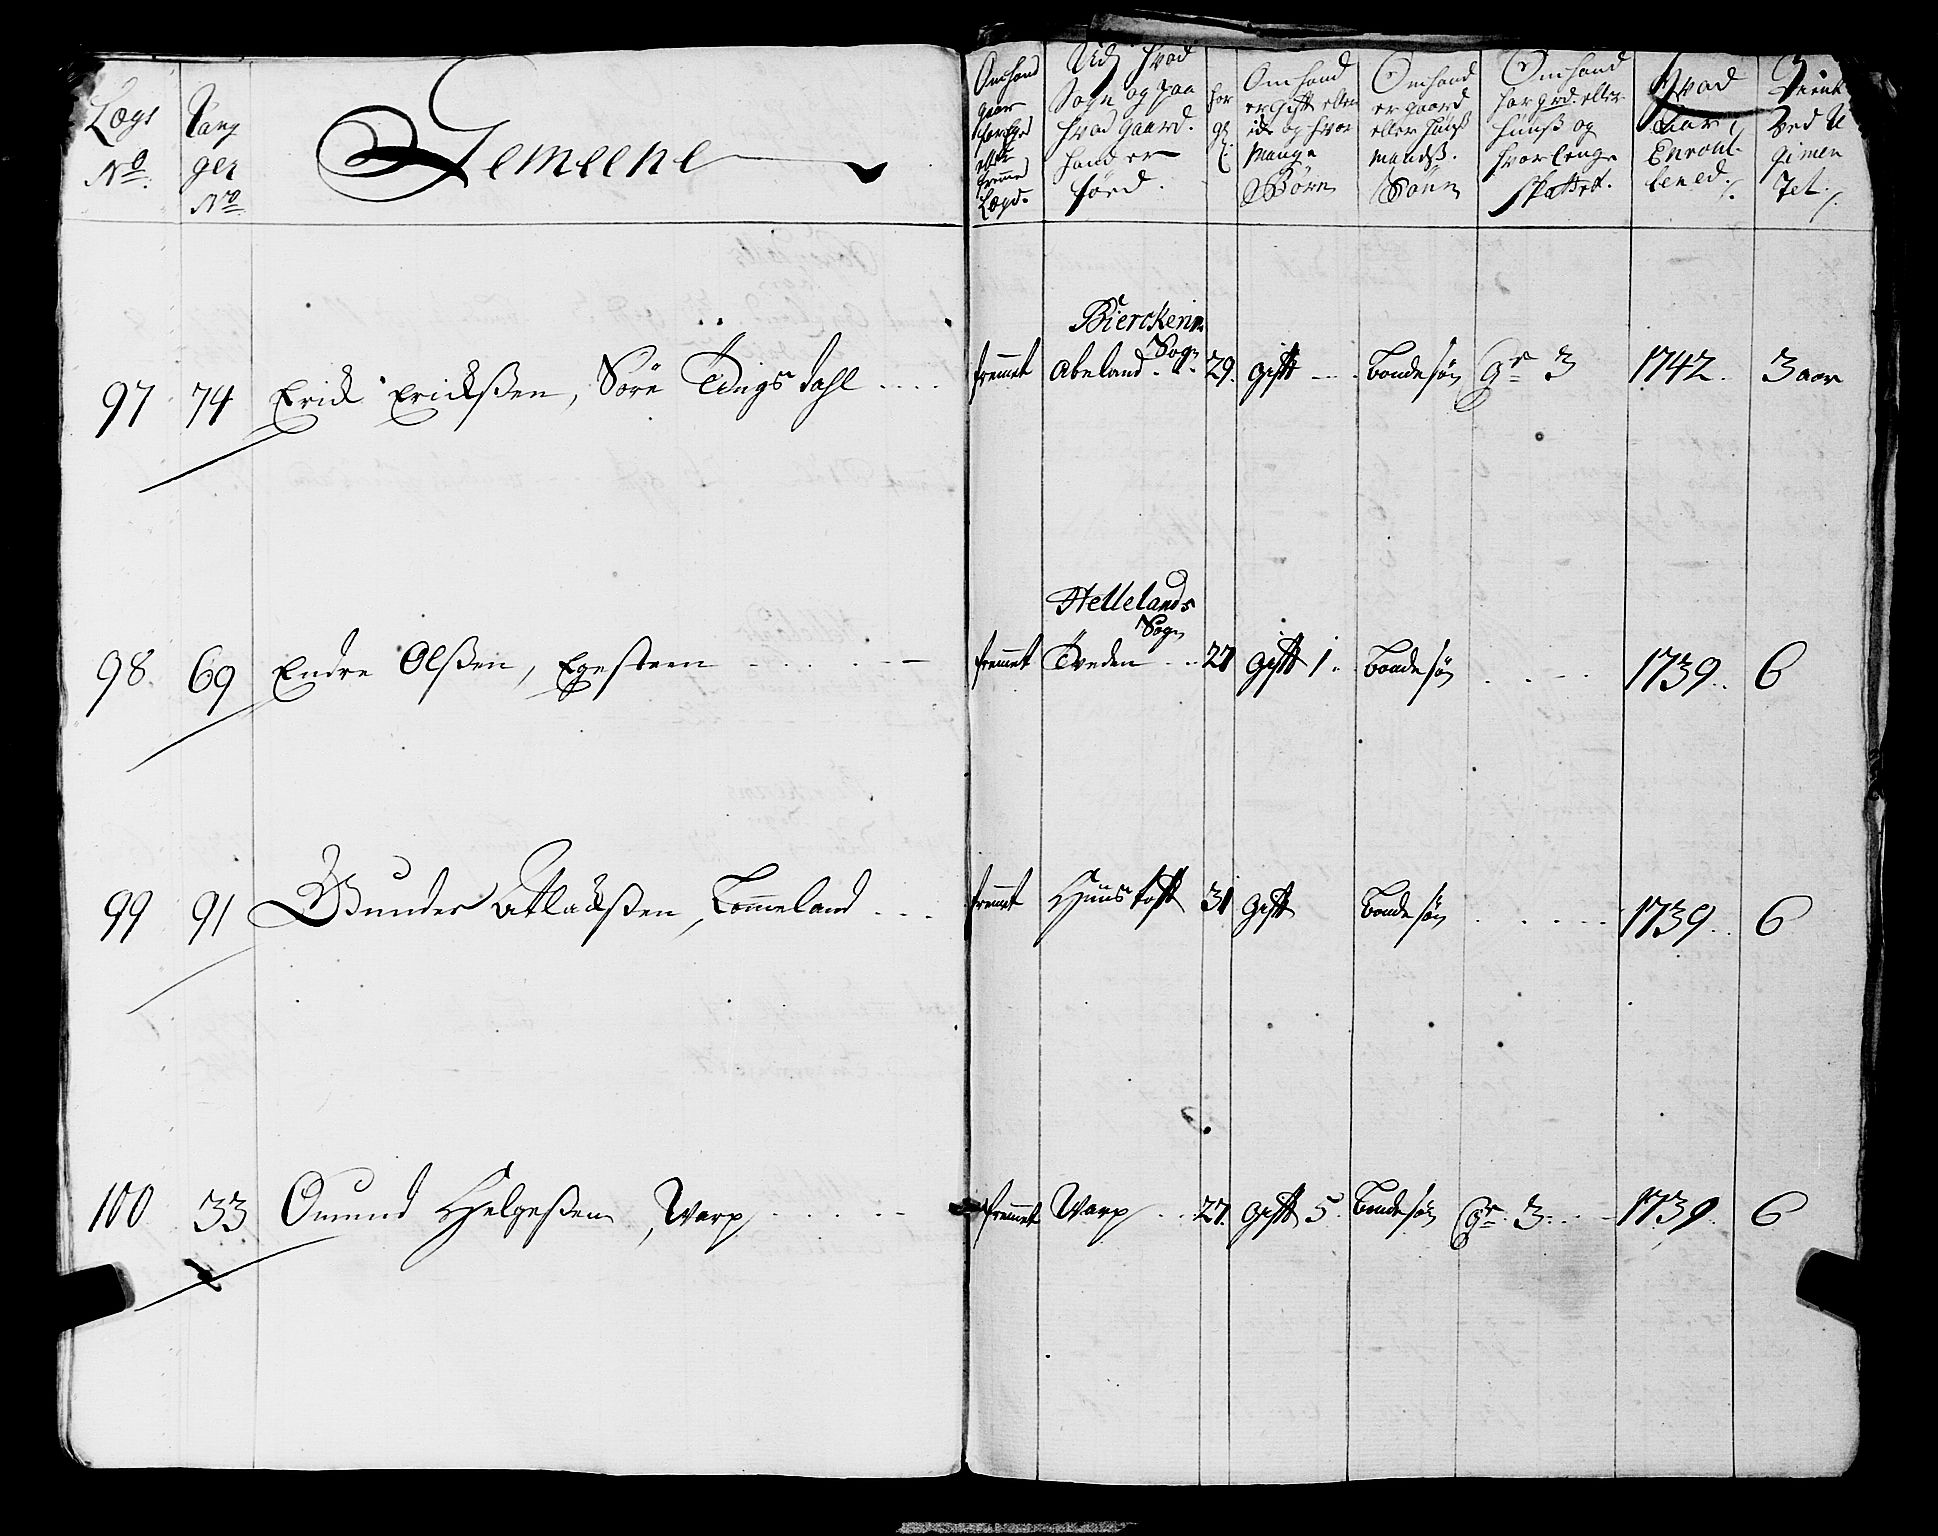 Lægs
No.
Rang
ger
No.
Gemeene
Om hand
gaar
for Eget
eller
fremmed
Lægd.
Udj hvad
Sogn og paa
hvad gaard.
hand er
föed.
Om hand
er gift eller
ide og hvor
Mange
Börn
Om hand
er gaard
eller Huus
mands.
Sönn
Om hand
har grd. eller
Huus og
hvor lenge
skattet.
Hvad
Aar
Enroul-
lened.
Tient
Ved R
gimen
tet.
97 74 Erick Erickßen, Sore Tdingsdahl . . . . fremet Bierckeriim Sogn Abeland. 29. gift - - . Bondesøn Gr 3 1742. 3 aar
98. 69 Endre Olßen, Egesteen . . . . . fremet Hellelands Sogn Tveden . . 27 gift 1. Bondesøn . . . . 1739. 6
99 91 Gunder Atlackßen, Tommeland . . . fremet Huustoft 31 gift Bondesøn . . . . 1739. 6
100 33 Omund Helgeßen, Warp . . . . . fremet Warp . . 27. gift 5. Bondesøn Gr. 3. . . . 1739. 6